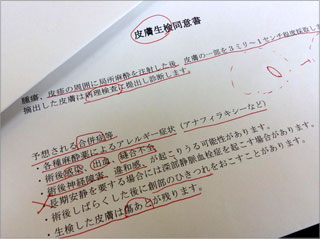 皮膚生検同意書
腫瘍、皮疹の周囲に局所麻酔を注射した後、皮膚の一部を3ミリ~1センチ程度採取しま
摘出した皮膚は病理検査に提出し診断します。
予想される合併症等
・各種麻酔薬によるアレルギー症状(アナフィラキシーなど)
・術後感染、出血、縫合不全
・術後神経障害、違和感、が起こりうる可能性があります。
・長期安静を要する場合には深部静脈血栓症を起こす場合があります。
・術後しばらくした後に創部のひきつれをおこすことがあります。
・生検した皮膚は傷あとが残ります。